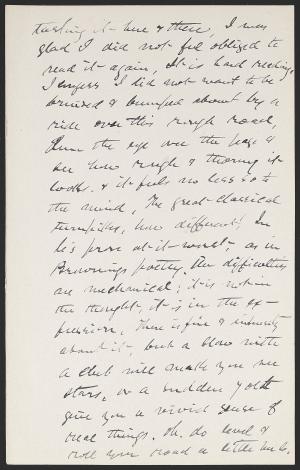 tasting it here & there, I was
glad I did not feel obliged to
read it again, It is hard reading.
I confess I did not want to be
bruised & bumped about by a
ride over this rough road,
Run the eye over the page &
see how rough & thorny it
looks. & it feels no less so to
the mind, The great classical
turnpikes, how different! In
his prose at its worst, as in
Brownings poetry. the difficulties
are mechanical; it is not in
the thought, it is in the ex-
pression, There is fire & intensity
about it, but a blow with
a club will make you see
stars, or a sudden jolt
give you a vivid sense of
real things. Oh, do level &
roll your road a little Mr.